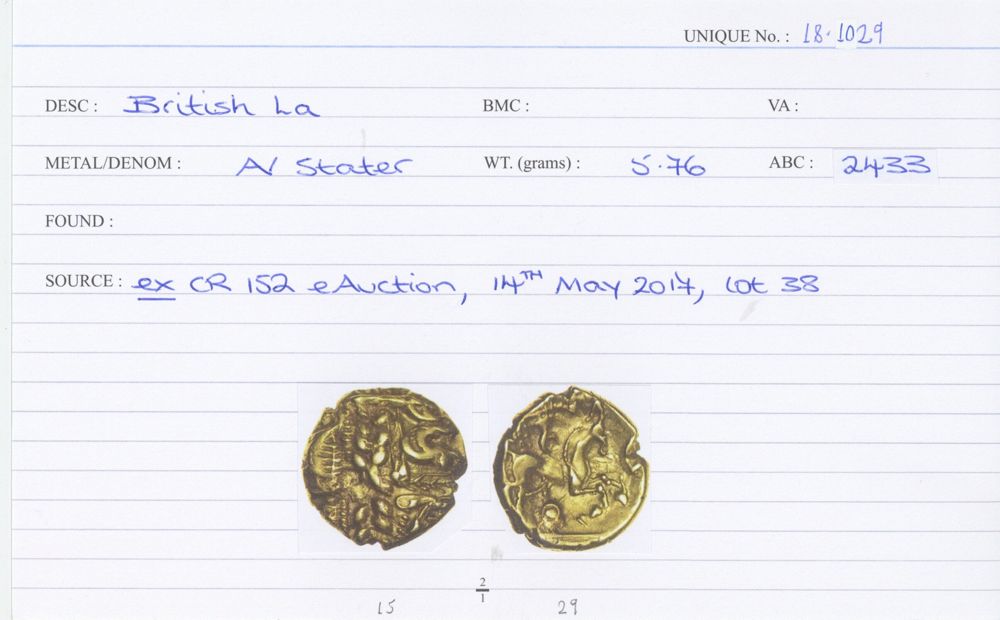 UNIQUE No. : 18.1029
DESC : British La BMC : VA :
METAL/DENOM : A/ Stater WT. (grams) : 5.76 ABC : 2433
FOUND :
SOURCE : ex CR 152 eAuction, 14TH May 2017, lot 38
2
1
15 29